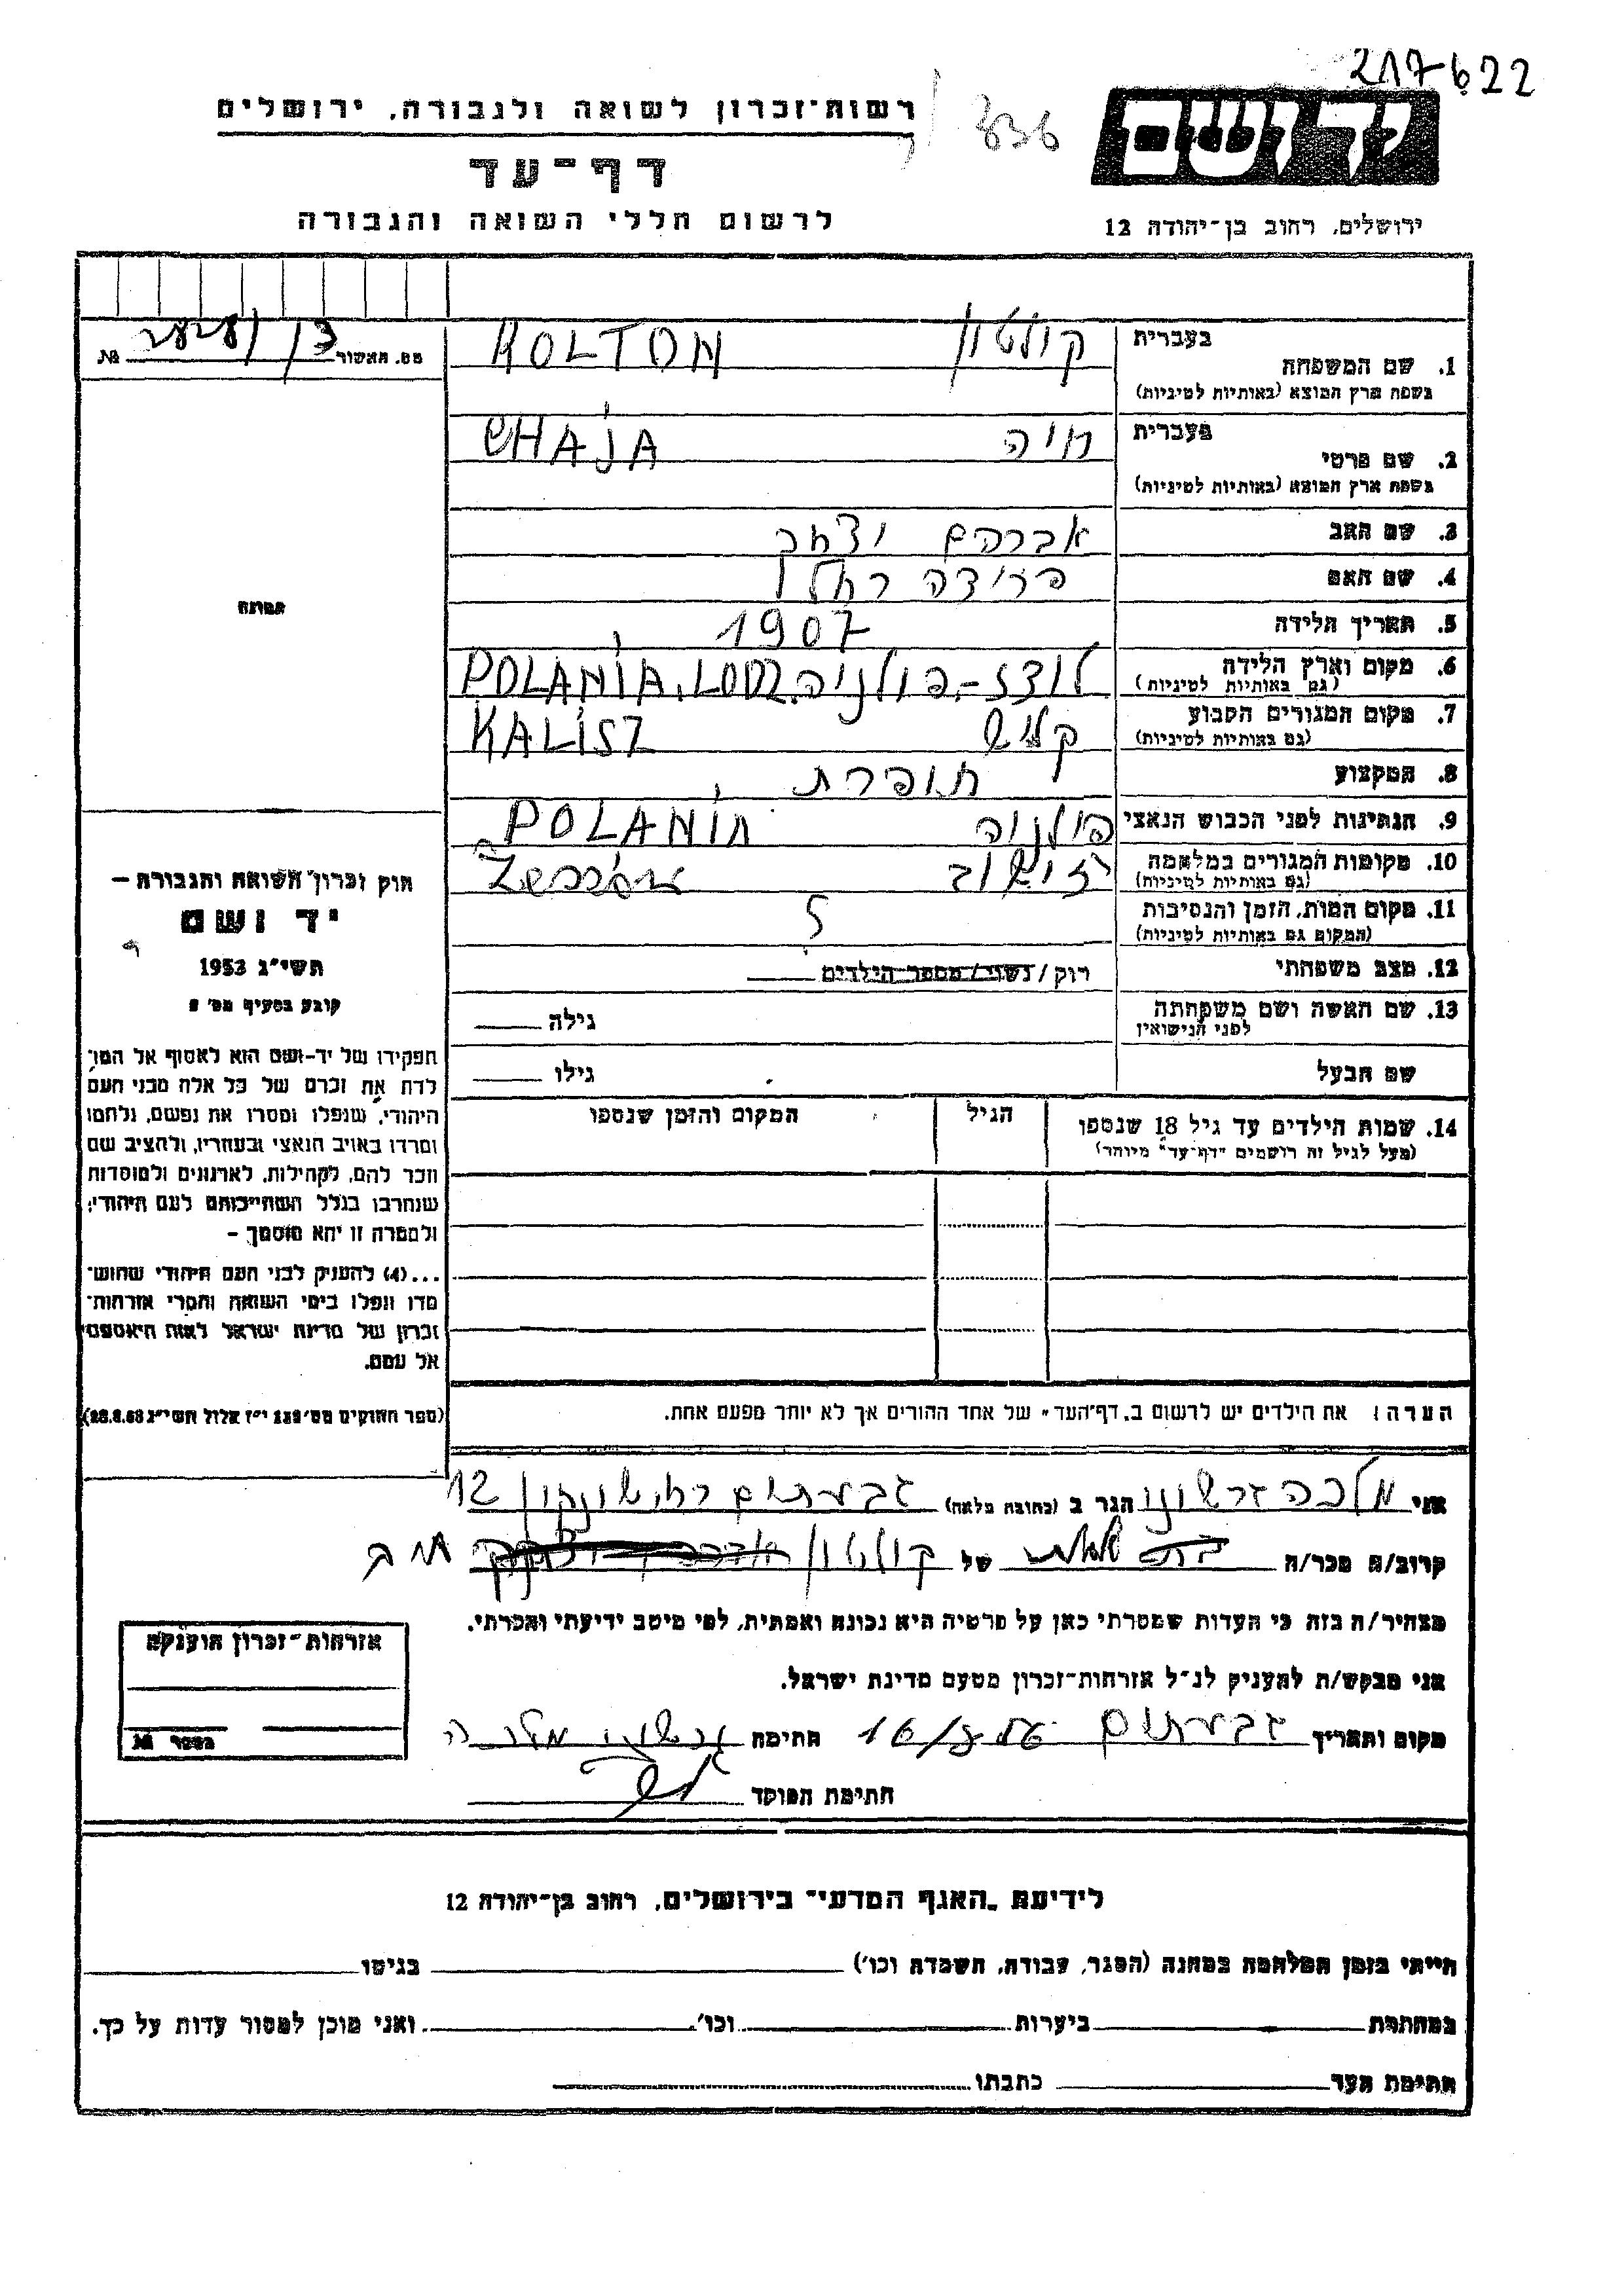 217622
רשות־זכרון לשואה ולגבורה, ירושלים
836
יד ושם
דף־עד
לרשום חללי השואה והגבורה
ירושלים, רחוב בן־יהודה 12
מס. האשור №
בעברית
1. שם המשפחה
קולטון KOLTON
בשפת ארץ המוצא (באותיות לטיניות)
בעברית
2. שם פרטי
חיה CHAJA
בשפת ארץ המוצא (באותיות לטיניות)
3. שם האב אברהם יצחק
4. שם האם
5. תאריך הלידה 1907
6. מקום וארץ הלידה לודז - פולניה. POLANIA. LODZ
(גם באותיות לטיניות)
7. מקום המגורים הקבוע קליש KALISZ
(גם באותיות לטיניות)
8. המקצוע תופרת
9. הנתינות לפני הכבוש הנאצי פולניה POLANIA
10. מקומות המגורים במלחמה
(גם באותיות לטיניות)
11. מקום המות, הזמן והנסיבות ?
(המקום גם באותיות לטיניות)
12. מצב משפחתי רווק / נשוי / מספר הילדים
13. שם האשה ושם משפחתה לפני הנישואין גילה
שם הבעל גילו
14. שמות הילדים עד גיל 18 שנספו הגיל המקום והזמן שנספו
(מעל לגיל זה רושמים "דף־עד" מיוחד)
תמונה
חוק זכרון השואה והגבורה —
יד ושם
תשי"ג 1953
קובע בסעיף מס' 2
תפקידו של יד-ושם הוא לאסוף אל המו־
לדת את זכרם של כל אלה מבני העם
היהודי, שנפלו ומסרו את נפשם, נלחמו
ומרדו באויב הנאצי ובעוזריו, ולהציב שם
וזכר להם, לקהילות, לארגונים ולמוסדות
שנחרבו בגלל השתייכותם לעם היהודי;
ולמטרה זו יהא מוסמך —
...(4) להעניק לבני העם היהודי שהוש־
מדו ונפלו בימי השואה והמרי אזרחות־
זכרון של מדינת ישראל לאות היאספם
אל עמם.
(ספר החוקים מס' 132 י"ז אלול תשי"ג 28.8.53)
הערה: את הילדים יש לרשום ב„דף־העד" של אחד ההורים אך לא יותר מפעם אחת.
אני מלכה גרשוני הגר ב (כתובת מלאה) גבעתיים 12
קרוב/ה מכר/ה של קולטון
מצהיר/ה בזה כי העדות שמסרתי כאן על פרטיה היא נכונה ואמתית, לפי מיטב ידיעתי והכרתי.
אני מבקש/ת להעניק לנ"ל אזרחות־זכרון מטעם מדינת ישראל.
מקום ותאריך גבעתיים 16/ חתימה גרשוני מלכה
חתימת הפוקד
אזרחות־זכרון הוענקה
מספר №
לידיעת „האגף המדעי" בירושלים, רחוב בן־יהודה 12
הייתי בזמן המלחמה במחנה (הסגר, עבודה, השמדה וכו') בגיטו
במחתרת ביערות וכו' ואני מוכן למסור עדות על כך.
חתימת העד כתבתו